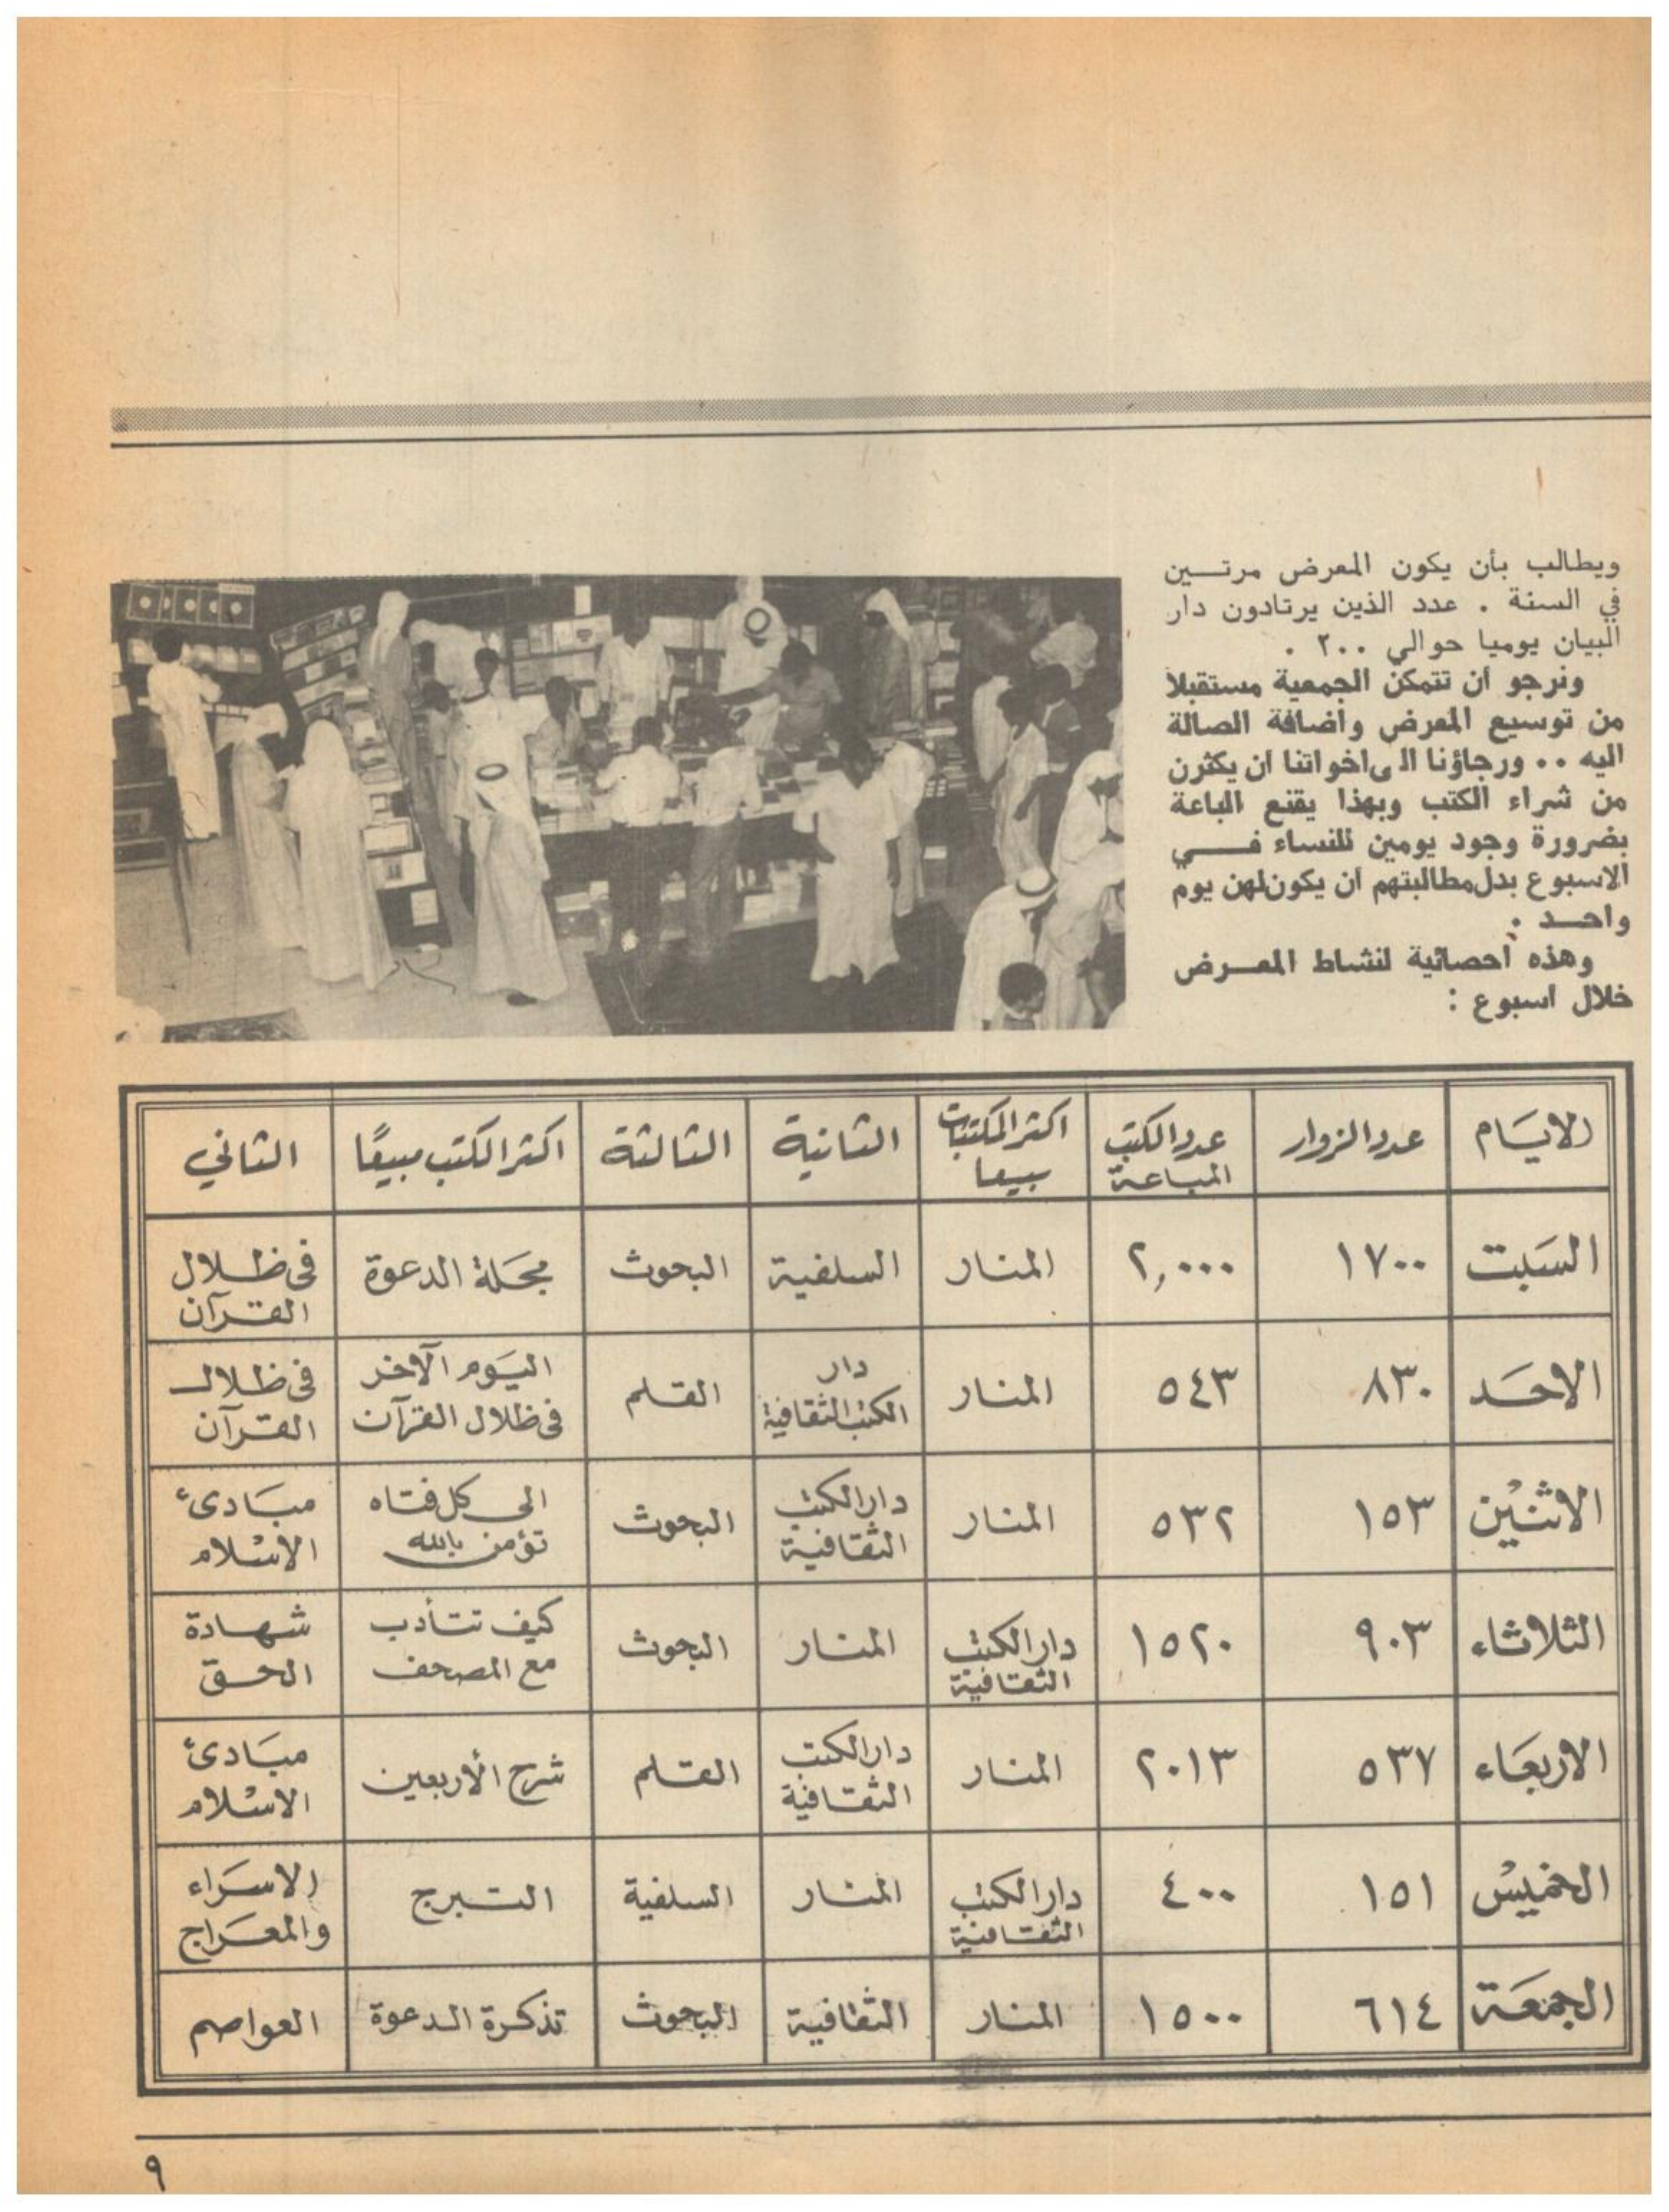 ويطالب بأن يكون المعرض مرتـــين
في السنة . عدد الذين يرتادون دار
البيان يوميا حوالي ٢٠٠ .
ونرجو أن تتمكن الجمعية مستقبلا
من توسيع المعرض واضافة الصالة
اليه .. ورجاؤنا الى اخواتنا ان يكثرن
من شراء الكتب وبهذا يقنع الباعة
بضرورة وجود يومين للنساء فـــــي
الاسبوع بدل مطالبتهم ان يكون لهن يوم
واحـــد .
وهذه احصائية لنشاط المعـــرض
خلال اسبوع :
الايام عدد الزوار عدد الكتب المباعة اكثر المكتبات بيعا الثانية الثالثة اكثر الكتب مبيعًا الثاني
السبت ١٧٠٠ ٢,٠٠٠ المنار السلفية البحوث مجلة الدعوة فى ظلال القرآن
الاحد ٨٣٠ ٥٤٣ المنار دار الكتب الثقافية القلم اليوم الآخر فى ظلال القرآن فى ظلال القرآن
الاثنين ١٥٣ ٥٣٢ المنار دار الكتب الثقافية البحوث الى كل فتاه تؤمن بالله مبادىء الاسلام
الثلاثاء ٩٠٣ ١٥٢٠ دار الكتب الثقافية المنار البحوث كيف تتأدب مع المصحف شهادة الحق
الاربعاء ٥٣٧ ٢٠١٣ المنار دار الكتب الثقافية القلم شرح الأربعين مبادىء الاسلام
الخميس ١٥١ ٤٠٠ دار الكتب الثقافية المنار السلفية التبرج الاسراء والمعراج
الجمعة ٦١٤ ١٥٠٠ المنار الثقافية البحوث تذكرة الدعوة العواصم
٩